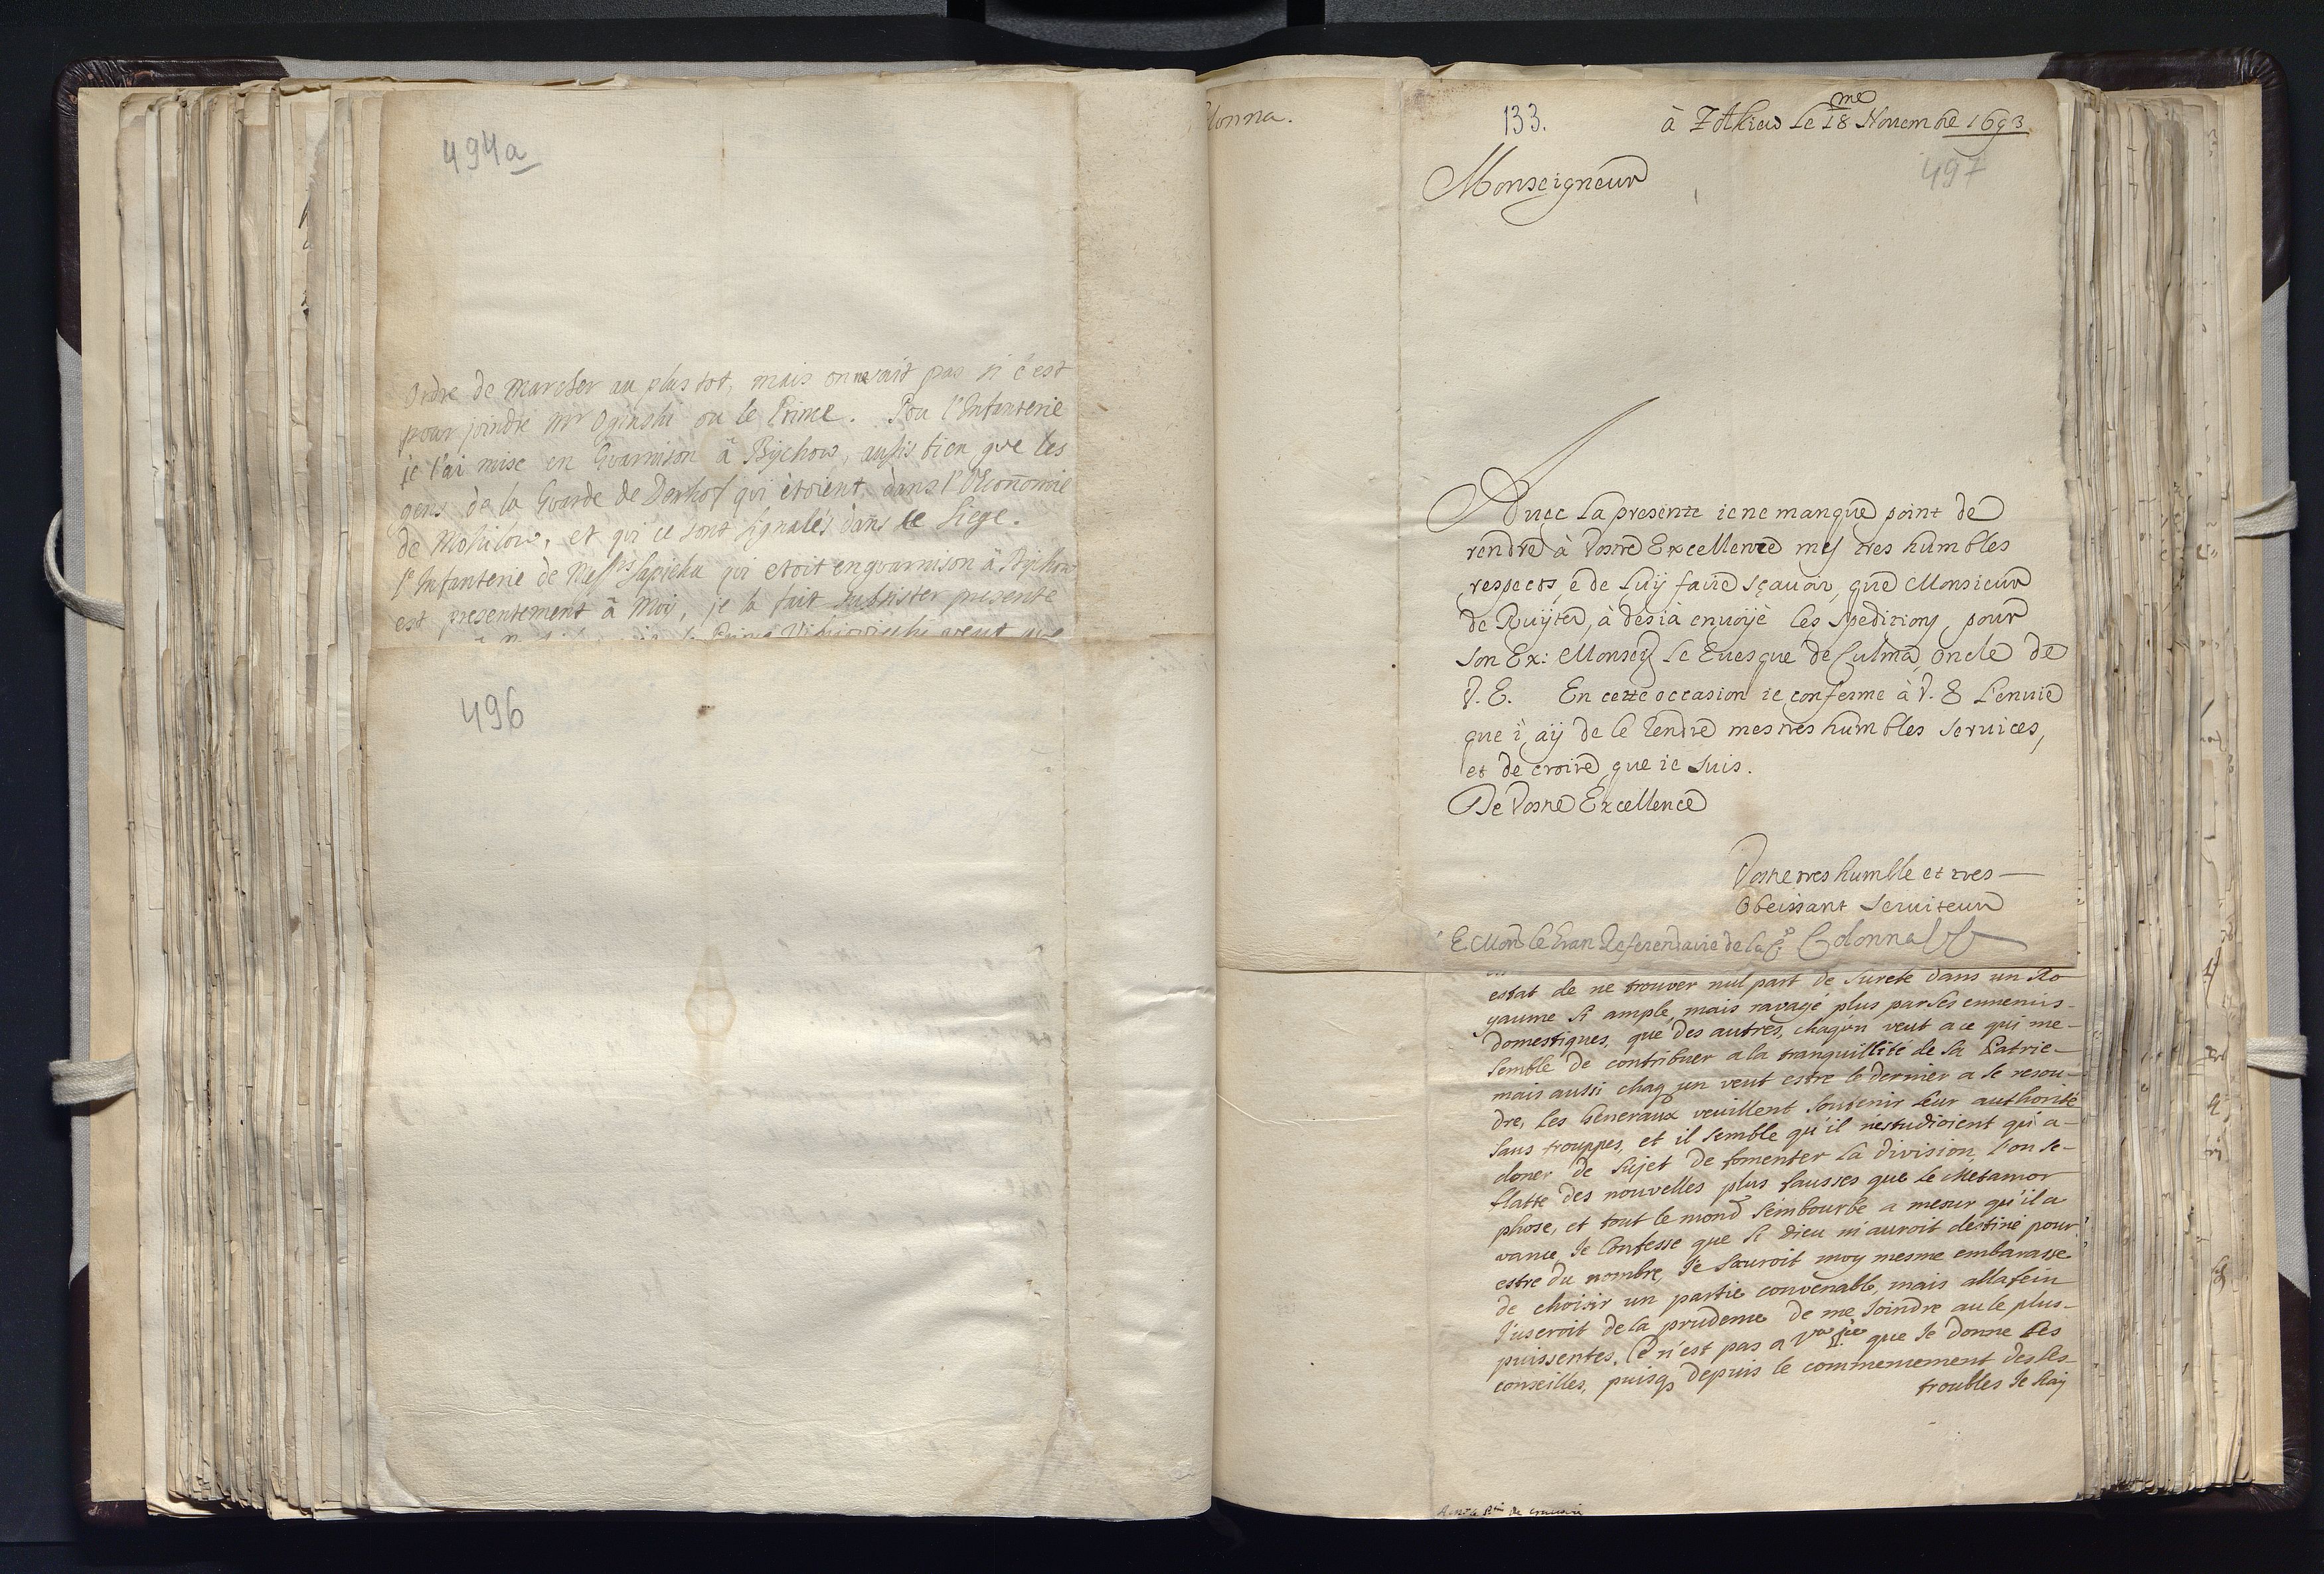 494a
Ordre de marcher au plus tot, mais on ne sait pas si c'est
pour joindre Mr Oginski ou le Prince. Pou l'Infanterie
je l'ai mise en Guarnison à Bychow, aussis bien que les
gens de la Guarde de Denhof qui etoient dans l'Economie
de Mohilow, et qui ce sont signalés dans le Siege.
l'Infanterie de Mess.rs Sapieha qui etoit en guarnison à Bychow
est presentement à Moy, je la fait subsister presente
496
olonna.
133.
à Zolkiew le 18me Novembe 1693
497
Monseigneur
Auec la presente ie ne manque point de
rendre à Vostre Excellence mes tres humbles
respects, e de luij faire sçauoir, que Monsieur
de Ruijter, à desià enuoijè les spedizions, pour
son Ex: Monseig le Euesque de Culma, oncle de
V. E. En cette occasion ie conferme à V. E l'enuie
que i'aij de le rendre mes tres humbles seruices,
et de croire que ie suis.
De Vostre Excellence
Vostre tres humble et tres
Obeissant Seruiteur
E. Mons le Gran Referendaire de la C. Colonna
estat de ne trouver nul part de sureté dans un Ro
yaume si ample, mais ravagé plus par ses ennemis
domestiques, que des autres, chaqún veut a ce qui me
semble de contribuer a la tranquillité de sa Patrie
mais aussi chaq un veut estre le dernier a se resou
dre, les Generaux veuillent soutenir leur authorité
sans trouppes, et il semble qu'il n'estudioient qu'a
doner de sujet de fomenter la division, l'on se
flatte des nouvelles plus fausses que le Metamor
phose, et tout le mond s'embourbe a mesur qu'il a
vance, Je Confesse que si Dieu m'auroit destiné pour
estre du nombre, Je sauroit moy mesme embarasse
de choisir un partie convenable, mais alla fein
J'useroit de la prudence de me joindre au le plus
puissentes, Ce n'est pas a Vre que Je donne les
conseilles, puisq depuis le commencement des les
troubles Je hay